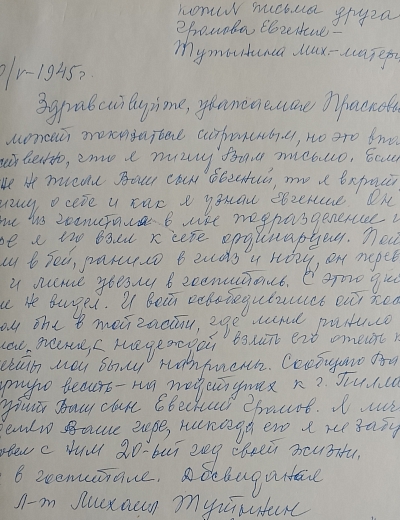 копия письма друга
Громова Евгения-
Тутынина Мих.-матери
/V-1945г.
Здравствуйте, уважаемая Прасковь
может показаться странным, но это впо
ственно, что я пишу Вам письмо. Если
не писал Ваш сын Евгений, то я вкрат
ишу о себе и как я узнал Евгения. Он
из госпиталя в мое подразделение и
я его взял к себе ординарцем. Пой
ли в бой, ранило в глаз и ногу, он
и меня увезли в госпиталь. С этого дня
не видел. И вот освободившись от
ом был в той части, где меня ранило
надеждой взять его опять к
ечты мои были напрасны. Сообщаю Ва
весть - на подступах к г. Пилла
убит Ваш сын Евгений Громов. Я
Ваше горе, никогда его я не забу
с ним 20-ый год своей жизни.
в госпитале. Досвидания
Л-т Михаил Тутынин